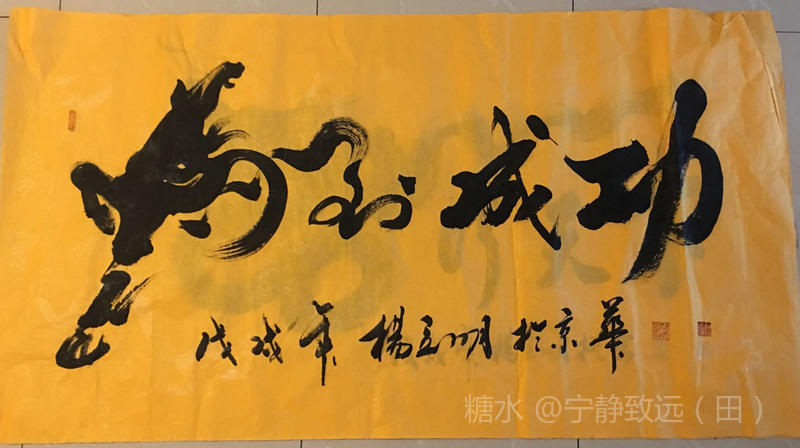 马到成功
戊戌年 楊明 於京華
糖水 @宁静致远（田）